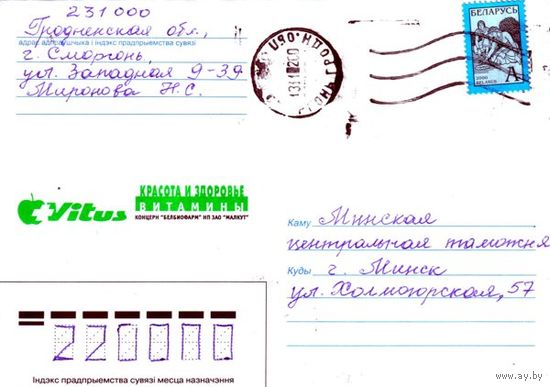 231000
Гродненская обл.,
адрас адпраўшчыка і індэкс прадпрыемства сувязі
г. Сморгонь,
ул. Западная 9-39
Миронова Н.С.
БЕЛАРУСЬ
A
2000
BELARUS
Vitus
КРАСОТА И ЗДОРОВЬЕ
ВИТАМИНЫ
КОНЦЕРН "БЕЛБИОФАРМ" НП ЗАО "МАЛКУТ"
Каму Минская
центральная таможня
Куды г. Минск
ул. Холмогорская, 57
220000
Індэкс прадпрыемства сувязі месца назначэння
www.ay.by